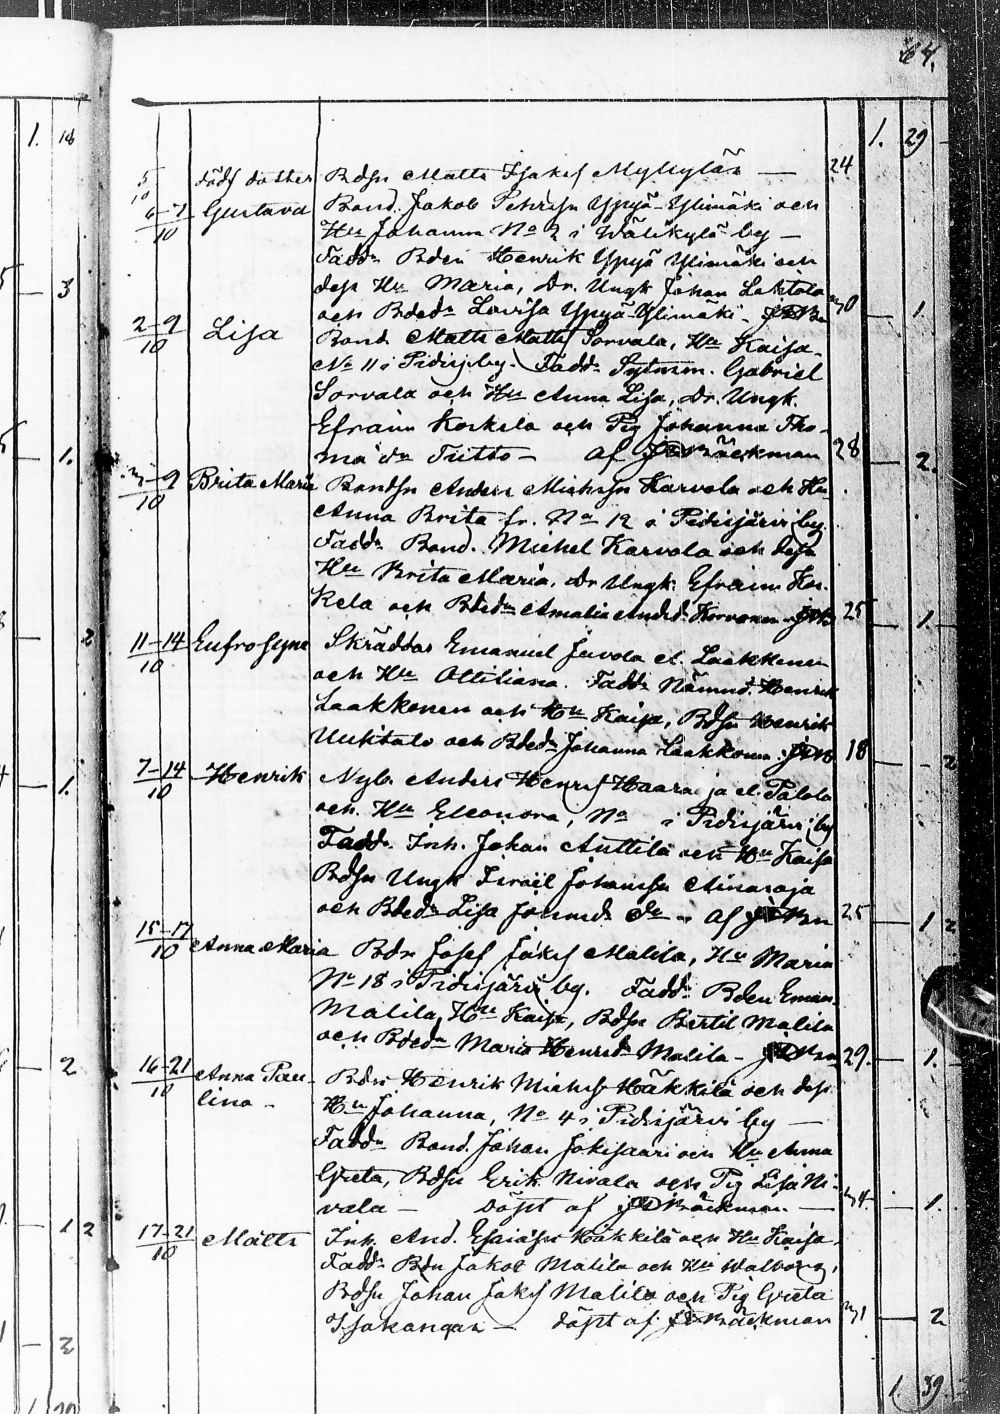 64.
1. 29
5/10 född dotter Bdsn Matts Isaks Myllylän — 24
6-7/10 Gustava Bond. Jakob Petersn Yppyä Ylimäki och
Hu Johanna No 2 i Wälikylä by —
Fadd. Bden Henrik Yppyä Ylimäki och
dess Hu Maria, Dr. Ungk Johan Laitola
och Bdedr Lovisa Yppyä Ylimäki — 30 — 1.
2-9/10 Lisa Bond Matts Matts Sorvala, Hu Kaisa
No 11 i Pidisj. by. Fadd. Sytnm. Gabriel
Sorvala och Hu Anna Lisa, Dr. Ungk.
Efraim Koskela och Pig Johanna Tho-
ma dr Tuitto — af Bäckman 28 — 2.
3-9/10 Brita Maria Bondsn Anders Michelsn Karvola och Hu
Anna Brita fr. No 12 i Pidisjärvi by.
Fadd. Bond. Michel Karvola och dess
Hu Brita Maria, Dr Ungk. Efraim Kos-
kela och Bdedr Amalia Andrsdr Korvonen 25 — 1.
11-14/10 Eufrosyne Skräddar Emanuel Juvola el. Laakkonen
och Hu Ottiliana. Fadd. Nämnd. Henrik
Laakkonen och Hu Kaisa, Bdsn Henrik
Uuktalo och Bdedr Johanna Laakkonen 18 — 2
7-14/10 Henrik Nyb. Anders Henrs Haaraoja el. Palola
och Hu Eleonora, No i Pidisjärvi by
Fadd. Inh. Johan Anttila och Hu Kaisa
Bdsn Ungk Israël Johanssn Ainasoja
och Bdedr Lisa do — af 25 — 1 2
15-17/10 Anna Maria Bdn Josef Jakss Malila, Hu Maria
No 18 i Pidisjärvi by. Fadd. Bden Eman.
Malila, Hu Kaisa, Bdsn Bertil Malila
och Bdedr Maria Henrsdr Malila — 29. — 1.
16-21/10 Anna Pau- Bdn Henrik Michels Häkkilä och dess
lina — Hu Johanna, No 4 i Pidisjärvi by —
Fadd. Bond. Johan Jokisaari och Hu Anna
Greta, Bdsn Erik Nivala och Pig Lisa Ni-
vala — Döpt af Bäckman — 34 — 1.
17-21/10 Matts Inh. And. Esaiassn Häkkilä och Hu Kaisa.
Fadd. Bdn Jakob Malila och Hu Walborg,
Bdsn Johan Jaks Malila och Pig Greta
Isakangas — döpt af Bäckman 31 — 2
1. 39.